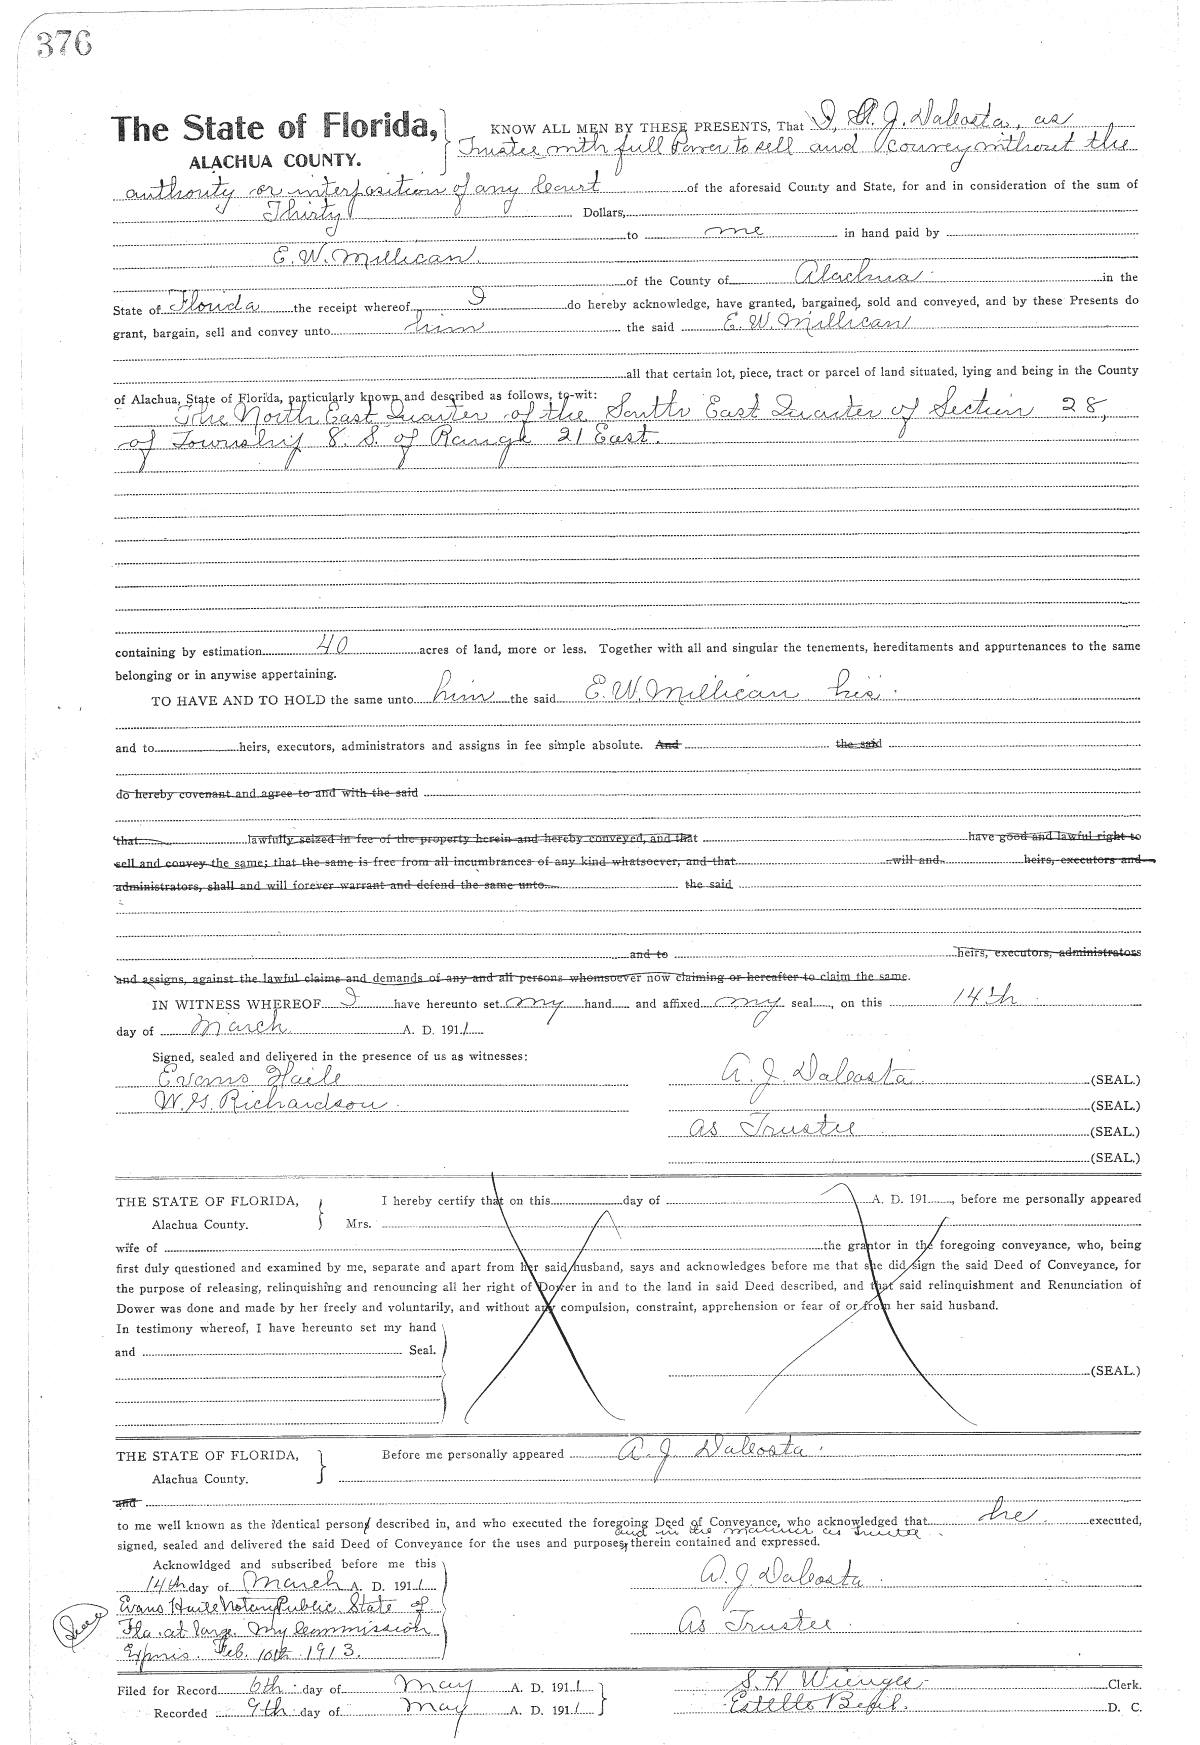 376
The State of Florida, KNOW ALL MEN BY THESE PRESENTS, That I, A. J. Dacosta, as
ALACHUA COUNTY. Trustee with full Power to sell and convey without the
authority or interposition of any Court of the aforesaid County and State, for and in consideration of the sum of
Thirty Dollars,
to me in hand paid by
E. W. Millican
of the County of Alachua in the
State of Florida the receipt whereof I do hereby acknowledge, have granted, bargained, sold and conveyed, and by these Presents do
grant, bargain, sell and convey unto him the said E. W. Millican
all that certain lot, piece, tract or parcel of land situated, lying and being in the County
of Alachua, State of Florida, particularly known and described as follows, to-wit:
The North East Quarter of the South East Quarter of Section 28,
of Township 8. S. of Range 21 East.
containing by estimation 40 acres of land, more or less. Together with all and singular the tenements, hereditaments and appurtenances to the same
belonging or in anywise appertaining.
TO HAVE AND TO HOLD the same unto him the said E. W. Millican his
and to heirs, executors, administrators and assigns in fee simple absolute. And the said
do hereby covenant and agree to and with the said
that lawfully seized in fee of the property herein and hereby conveyed, and that have good and lawful right to
sell and convey the same; that the same is free from all incumbrances of any kind whatsoever, and that will and heirs, executors and
administrators, shall and will forever warrant and defend the same unto the said
and to heirs, executors, administrators
and assigns, against the lawful claims and demands of any and all persons whomsoever now claiming or hereafter to claim the same.
IN WITNESS WHEREOF I have hereunto set my hand and affixed my seal, on this 14th
day of March A. D. 1911
Signed, sealed and delivered in the presence of us as witnesses:
Evans Haile A. J. Dacosta (SEAL.)
W. G. Richardson (SEAL.)
as Trustee (SEAL.)
(SEAL.)
THE STATE OF FLORIDA, I hereby certify that on this day of A. D. 191, before me personally appeared
Alachua County. Mrs.
wife of the grantor in the foregoing conveyance, who, being
first duly questioned and examined by me, separate and apart from her said husband, says and acknowledges before me that she did sign the said Deed of Conveyance, for
the purpose of releasing, relinquishing and renouncing all her right of Dower in and to the land in said Deed described, and that said relinquishment and Renunciation of
Dower was done and made by her freely and voluntarily, and without any compulsion, constraint, apprehension or fear of or from her said husband.
In testimony whereof, I have hereunto set my hand
and Seal.
(SEAL.)
THE STATE OF FLORIDA, Before me personally appeared A. J. Dacosta
Alachua County.
and
to me well known as the identical person described in, and who executed the foregoing Deed of Conveyance, who acknowledged that he executed,
and in the manner as trustee
signed, sealed and delivered the said Deed of Conveyance for the uses and purposes therein contained and expressed.
Acknowldged and subscribed before me this
14th day of March A. D. 1911 A. J. Dacosta
Evans Haile Notary Public State of
Seal Fla. at large My Commission As Trustee
Expires Feb. 10th 1913.
Filed for Record 6th day of May A. D. 1911 S. H. Wienges Clerk.
Recorded 9th day of May A. D. 1911 D. C.